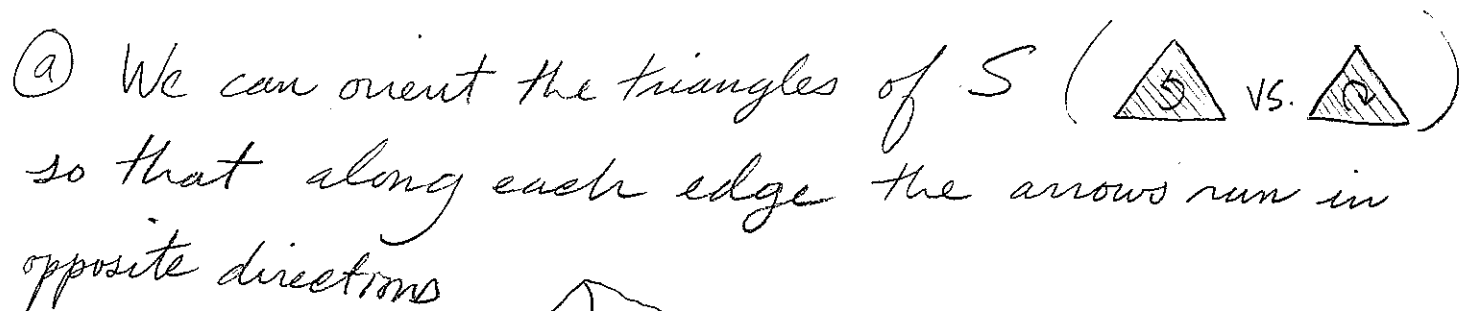 ⓐ We can orient the triangles of S ( vs. )
so that along each edge the arrows run in
opposite directions